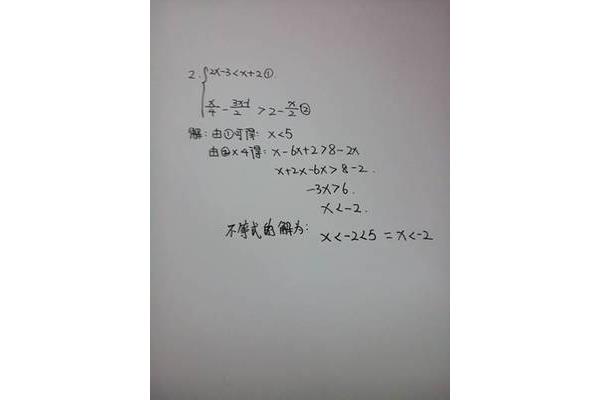 2. { 2x-3<x+2①.
x/4 - 3x-1/2 >2- x/2 ②
解:由①可得: x<5
由②×4得: x-6x+2>8-2x
x+2x-6x>8-2.
-3x>6.
x<-2.
不等式的解为: x<-2<5 = x<-2